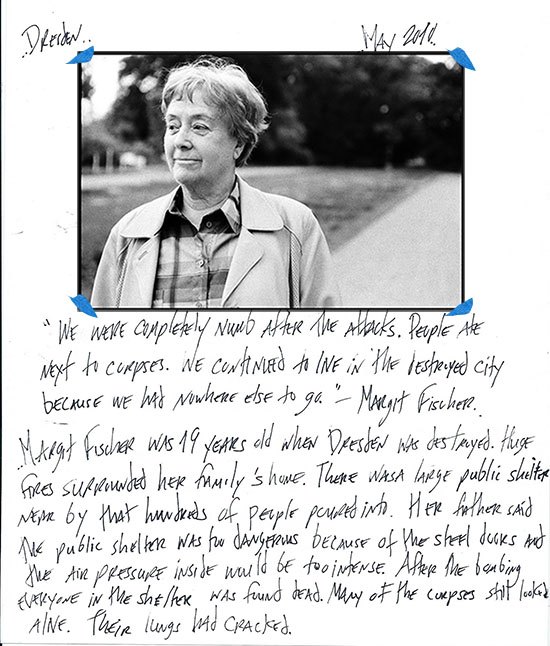 Dresden..
May 2010.
"We were completely numb after the attacks. People ate
next to corpses. We continued to live in the destroyed city
because we had nowhere else to go." – Margit Fischer.
Margit Fischer was 19 years old when Dresden was destroyed. Huge
fires surrounded her family's home. There was a large public shelter
near by that hundreds of people poured into. Her father said
the public shelter was too dangerous because of the steel doors and
the air pressure inside would be too intense. After the bombing
everyone in the shelter was found dead. Many of the corpses still looked
alive. Their lungs had cracked.